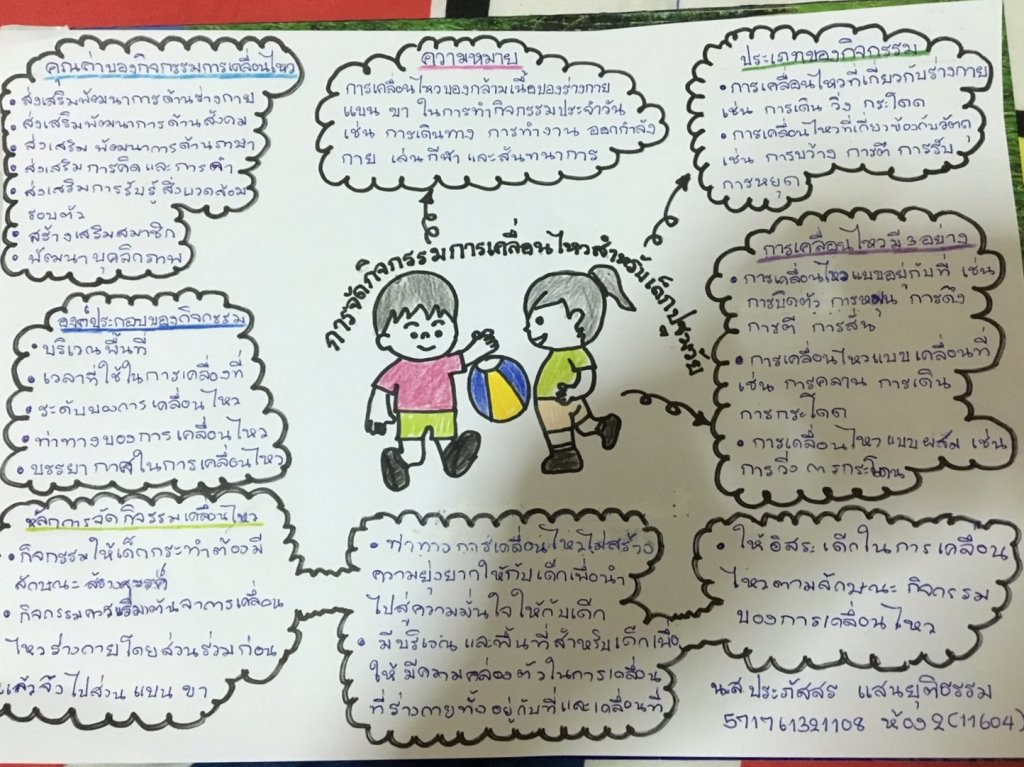 การจัดกิจกรรมการเคลื่อนไหวสำหรับเด็กปฐมวัย
คุณค่าของกิจกรรมการเคลื่อนไหว
• ส่งเสริมพัฒนาการด้านร่างกาย
• ส่งเสริมพัฒนาการด้านสังคม
• ส่งเสริมพัฒนาการด้านภาษา
• ส่งเสริมการคิดและการจำ
• ส่งเสริมการรับรู้สิ่งแวดล้อม
รอบตัว
• สร้างเสริมสมาชิก
• พัฒนาบุคลิกภาพ
ความหมาย
การเคลื่อนไหวของกล้ามเนื้อของร่างกาย
แขน ขา ในการทำกิจกรรมประจำวัน
เช่น การเดินทาง การทำงาน ออกกำลัง
กาย เล่นกีฬา และสันทนาการ
ประเภทของกิจกรรม
• การเคลื่อนไหวที่เกี่ยวกับร่างกาย
เช่น การเดิน วิ่ง กระโดด
• การเคลื่อนไหวที่เกี่ยวข้องกับวัตถุ
เช่น การขว้าง การตี การรับ
การหยุด
การเคลื่อนไหวมี 3 อย่าง
• การเคลื่อนไหวแบบอยู่กับที่ เช่น
การบิดตัว การหมุน การดึง
การตี การสั่น
• การเคลื่อนไหวแบบเคลื่อนที่
เช่น การคลาน การเดิน
การกระโดด
• การเคลื่อนไหวแบบผสม เช่น
การวิ่ง การกระโดน
องค์ประกอบของกิจกรรม
• บริเวณพื้นที่
• เวลาที่ใช้ในการเคลื่องที่
• ระดับของการเคลื่อนไหว
• ท่าทางของการเคลื่อนไหว
• บรรยากาศในการเคลื่อนไหว
หลักการจัดกิจรรมเคลื่อนไหว
• กิจกรรมให้เด็กกระทำต้องมี
ลักษณะ
• กิจกรรมควรเริ่มต้นจาการเคลื่อน
ไหวร่างกายโดยส่วนร่วมก่อน
แล้วจึงไปส่วน แขน ขา
• ท่าทางการเคลื่อนไหวไม่สร้าง
ความยุ่งยากให้กับเด็กเพื่อนำ
ไปสู่ความมั่นใจให้กับเด็ก
• มีบริเวณ และพื้นที่สำหรับเด็กเพื่อ
ให้มีความคล่องตัวในการเคลื่อน
ที่ร่างกายทั้งอยู่กับที่และเคลื่อนที่
• ให้อิสระเด็กในการเคลื่อน
ไหวตามลักษณะ กิจกรรม
ของการเคลื่อนไหว
น.ส ประภัสสร แสนยุติธรรม
57176132​1108 ห้อง 2(11604)